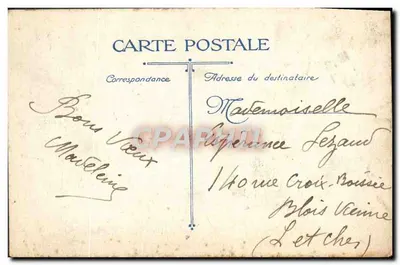 CARTE POSTALE
Correspondance
Adresse du destinataire
Bons Vœux
Madeleine
Mademoiselle
Lezaud
140 rue Croix-Boissée
Blois Vienne
(L et cher)